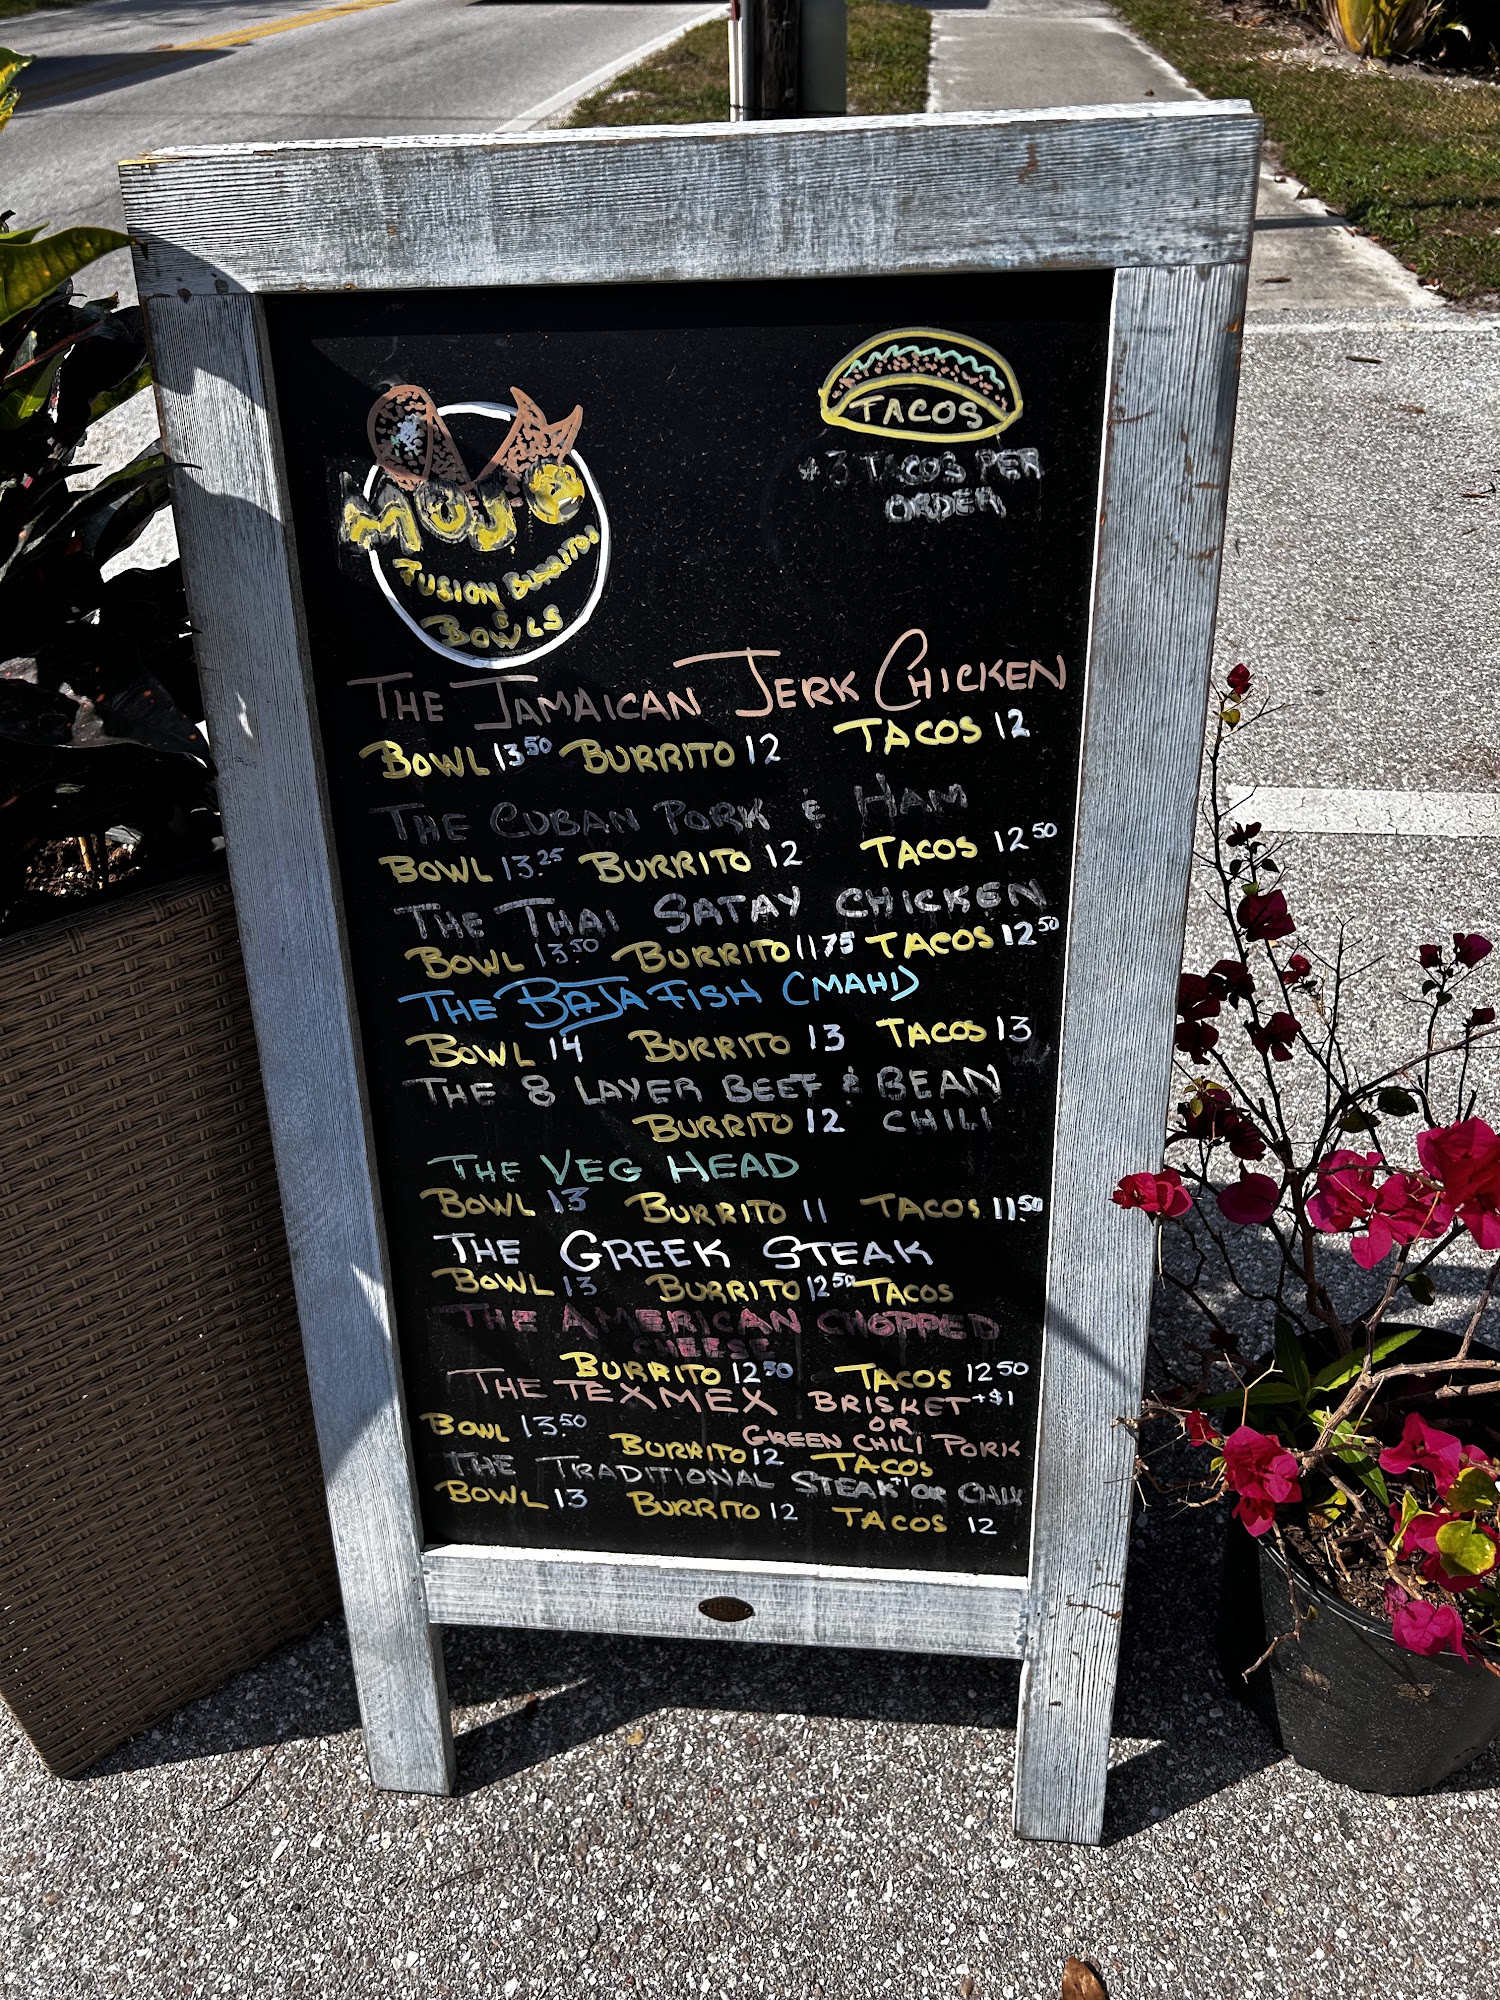 MOJO
FUSION BURRITOS
&
BOWLS
TACOS
3 TACOS PER
ORDER
THE JAMAICAN JERK CHICKEN
BOWL 13 50 BURRITO 12 TACOS 12
THE CUBAN PORK & HAM
BOWL 13.25 BURRITO 12 TACOS 12 50
THE THAI SATAY CHICKEN
BOWL 13.50 BURRITO 11 75 TACOS 12 50
THE BAJA FISH (MAHI)
BOWL 14 BURRITO 13 TACOS 13
THE 8 LAYER BEEF & BEAN
BURRITO 12 CHILI
THE VEG HEAD
BOWL 13 BURRITO 11 TACOS 11.50
THE GREEK STEAK
BOWL 13 BURRITO 12 50 TACOS
THE AMERICAN CHOPPED
CHEESE
BURRITO 12 50 TACOS 12 50
THE TEXMEX BRISKET +$1
OR
GREEN CHILI PORK
BOWL 13.50 BURRITO 12 TACOS
THE TRADITIONAL STEAK +1 OR CHIX
BOWL 13 BURRITO 12 TACOS 12